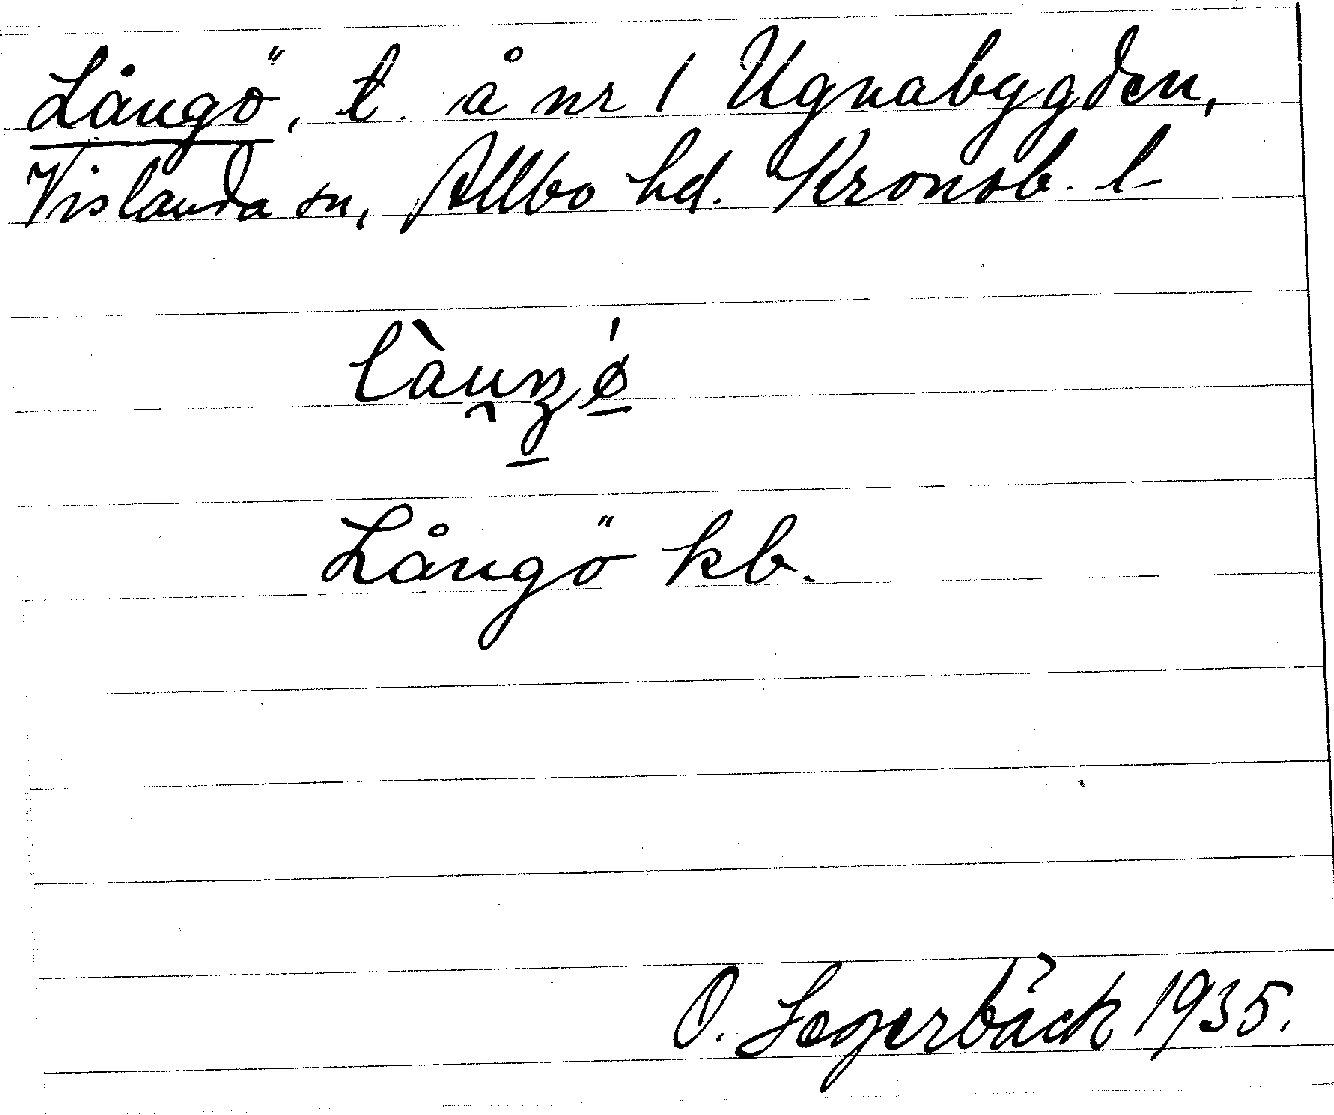 Långö, t. å nr 1 Ugnabygden,
Vislanda sn, Allbo hd. Kronob. l
Långö kb.
O. Segerbäck 1935.